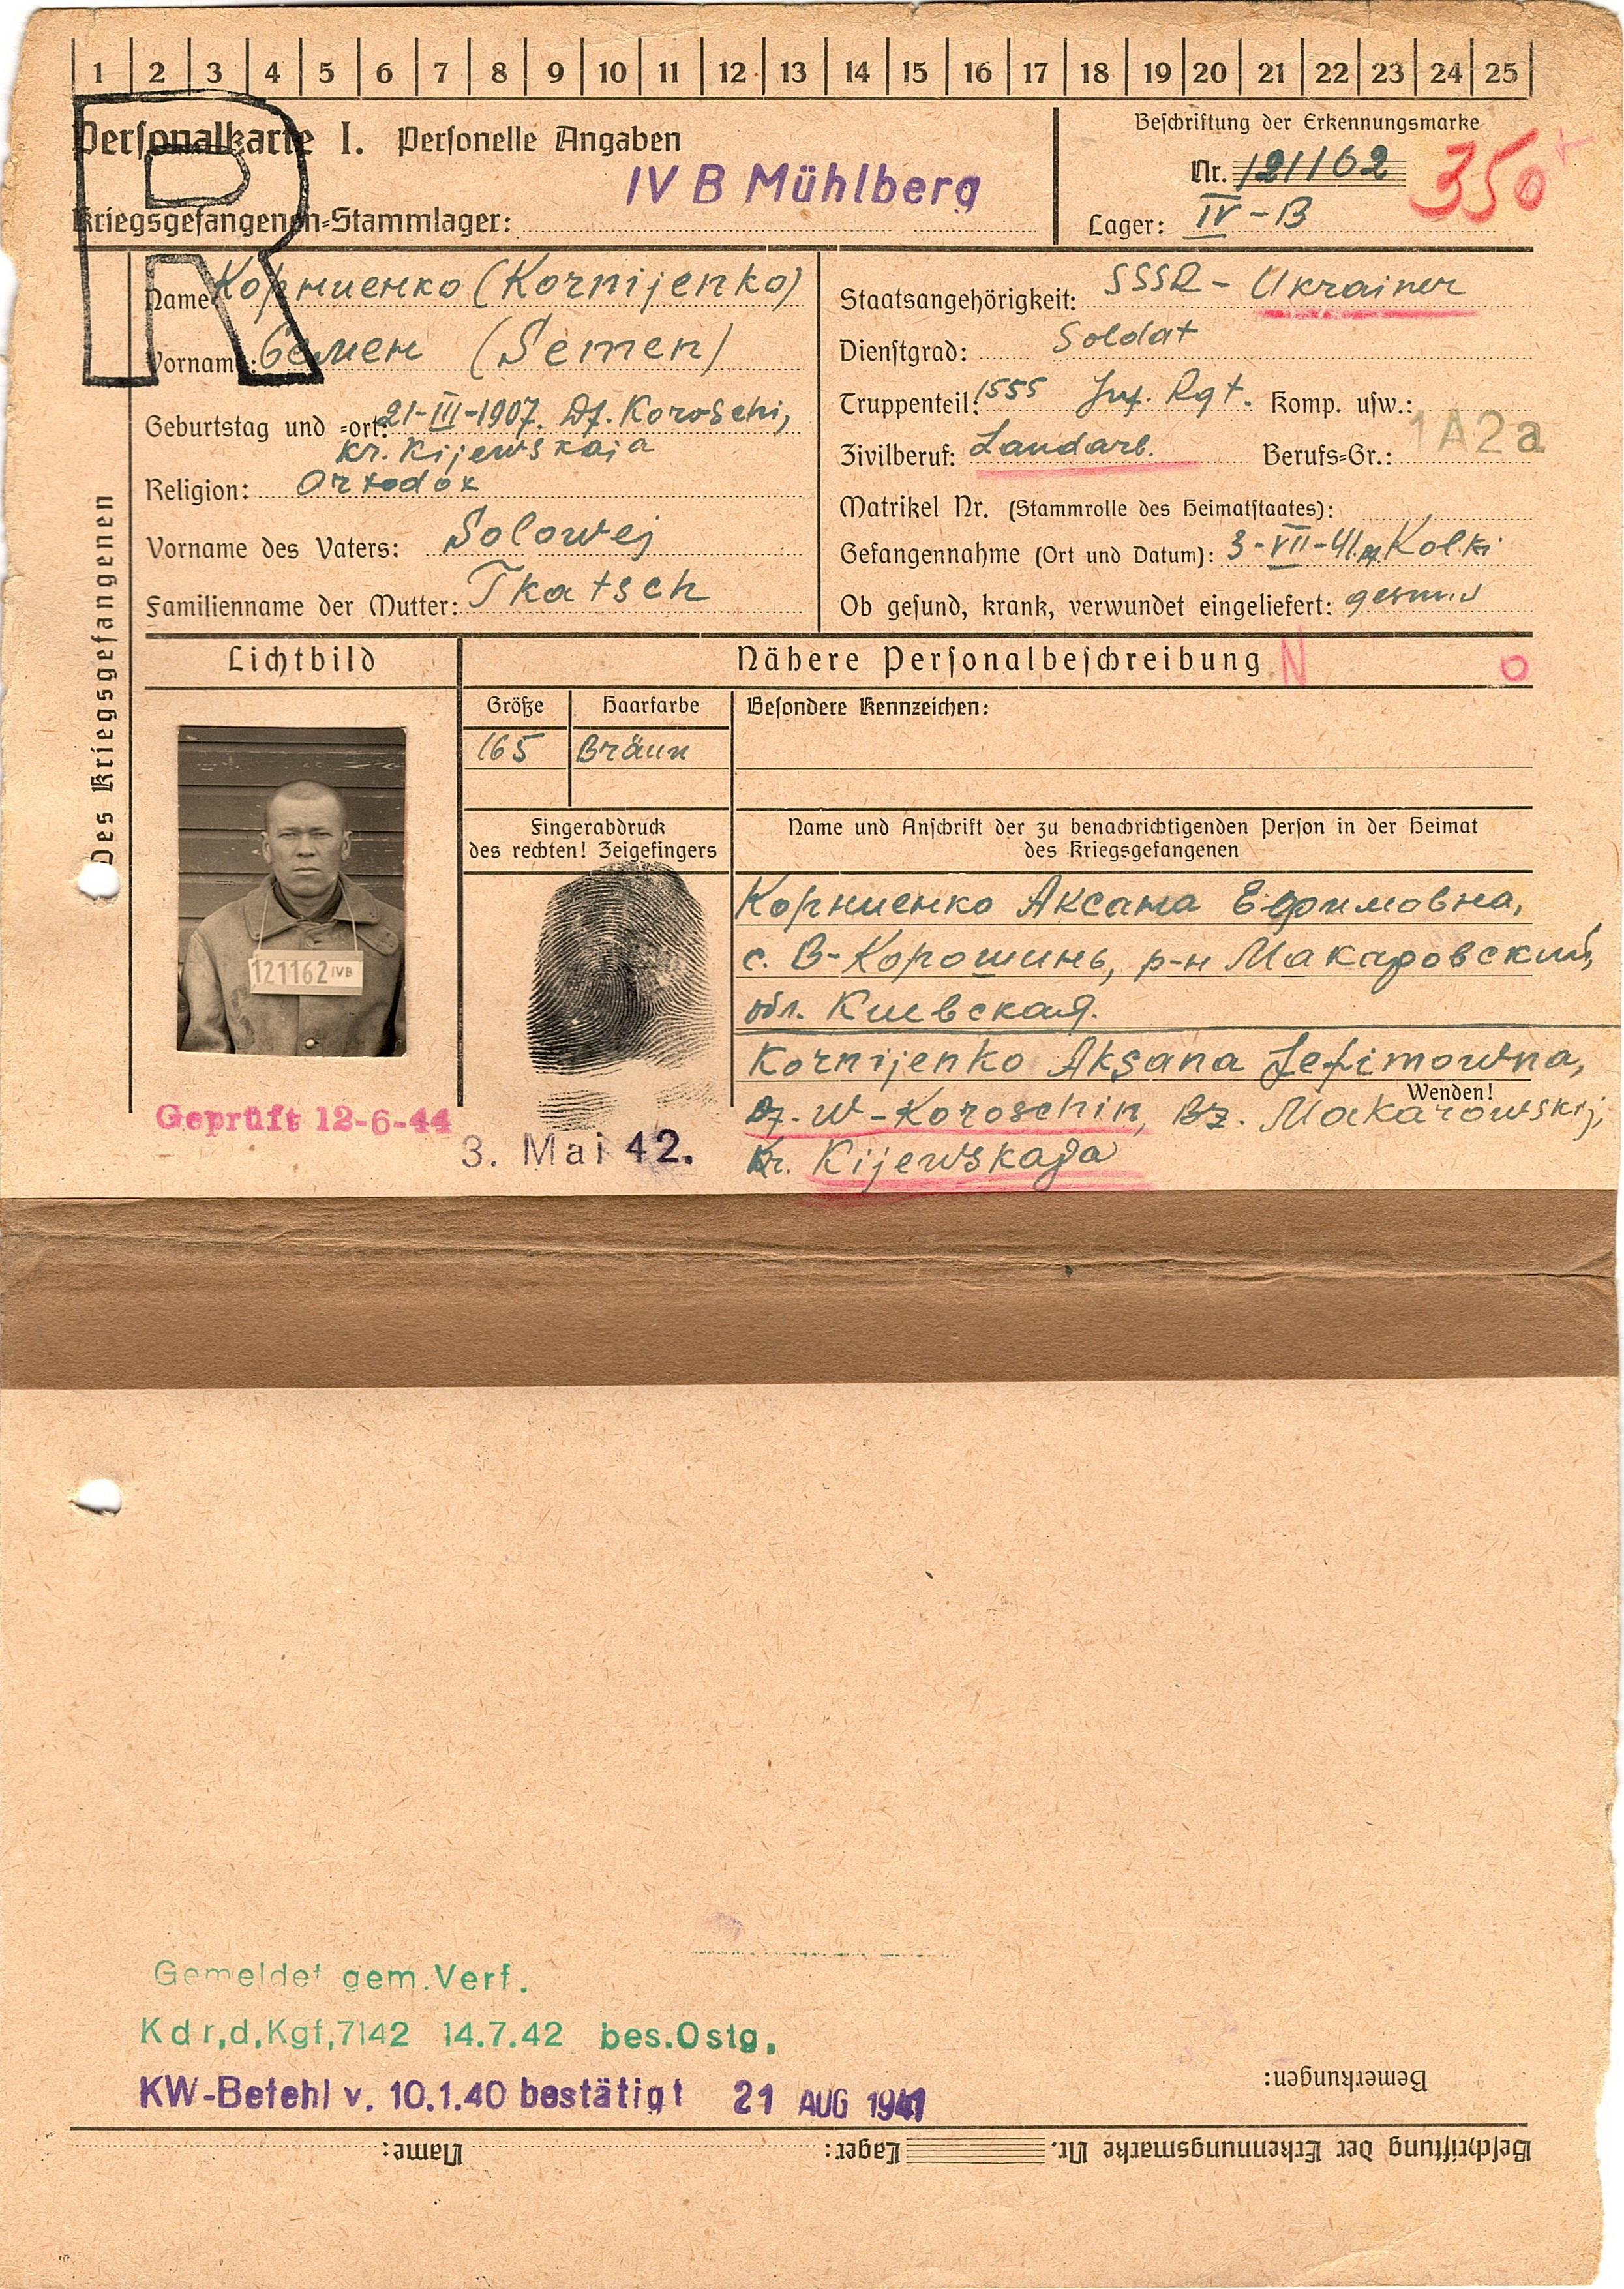 1 2 3 4 5 6 7 8 9 10 11 12 13 14 15 16 17 18 19 20 21 22 23 24 25
R
Personalkarte I. Personelle Angaben
IV B Mühlberg
Kriegsgefangenen-Stammlager:
Beschriftung der Erkennungsmarke
Nr. 121162
350
Lager: IV-B
Des Kriegsgefangenen
Name: Корниенко (Kornijenko)
Vorname: Семен (Semen)
Geburtstag und -ort: 21-III-1907. Df. Koroschi,
Kr. Kijewskaja
Religion: Ortodox
Vorname des Vaters: Solowej
Familienname der Mutter: Tkatsch
Staatsangehörigkeit: SSSR - Ukrainer
Dienstgrad: Soldat
Truppenteil: 1555 Inf. Rgt. Komp. usw.:
Zivilberuf: Landarb. Berufs-Gr.: 1A2a
Matrikel Nr. (Stammrolle des Heimatstaates):
Gefangennahme (Ort und Datum): 3-VII-41. Kolki
Ob gesund, krank, verwundet eingeliefert: gesund
Lichtbild
Nähere Personalbeschreibung N o
Größe Haarfarbe Besondere Kennzeichen:
165 Bräun
Fingerabdruck
des rechten! Zeigefingers
Name und Anschrift der zu benachrichtigenden Person in der Heimat
des Kriegsgefangenen
121162 IVB
Корниенко Аксана Ефимовна,
с. В-Корошинь, р-н Макаровский,
обл. Киевская.
Kornijenko Aksana Jefimowna,
Wenden!
Df. W-Koroschin, Bz. Makarowskij,
Kr. Kijewskaja
Geprüft 12-6-44
3. Mai 42.
Gemeldet gem. Verf.
Kdr,d,Kgf,7142 14.7.42 bes.Ostg,
KW-Befehl v. 10.1.40 bestätigt 21 AUG 1941
Bemerkungen:
Beschriftung der Erkennungsmarke Nr. Lager: Name: